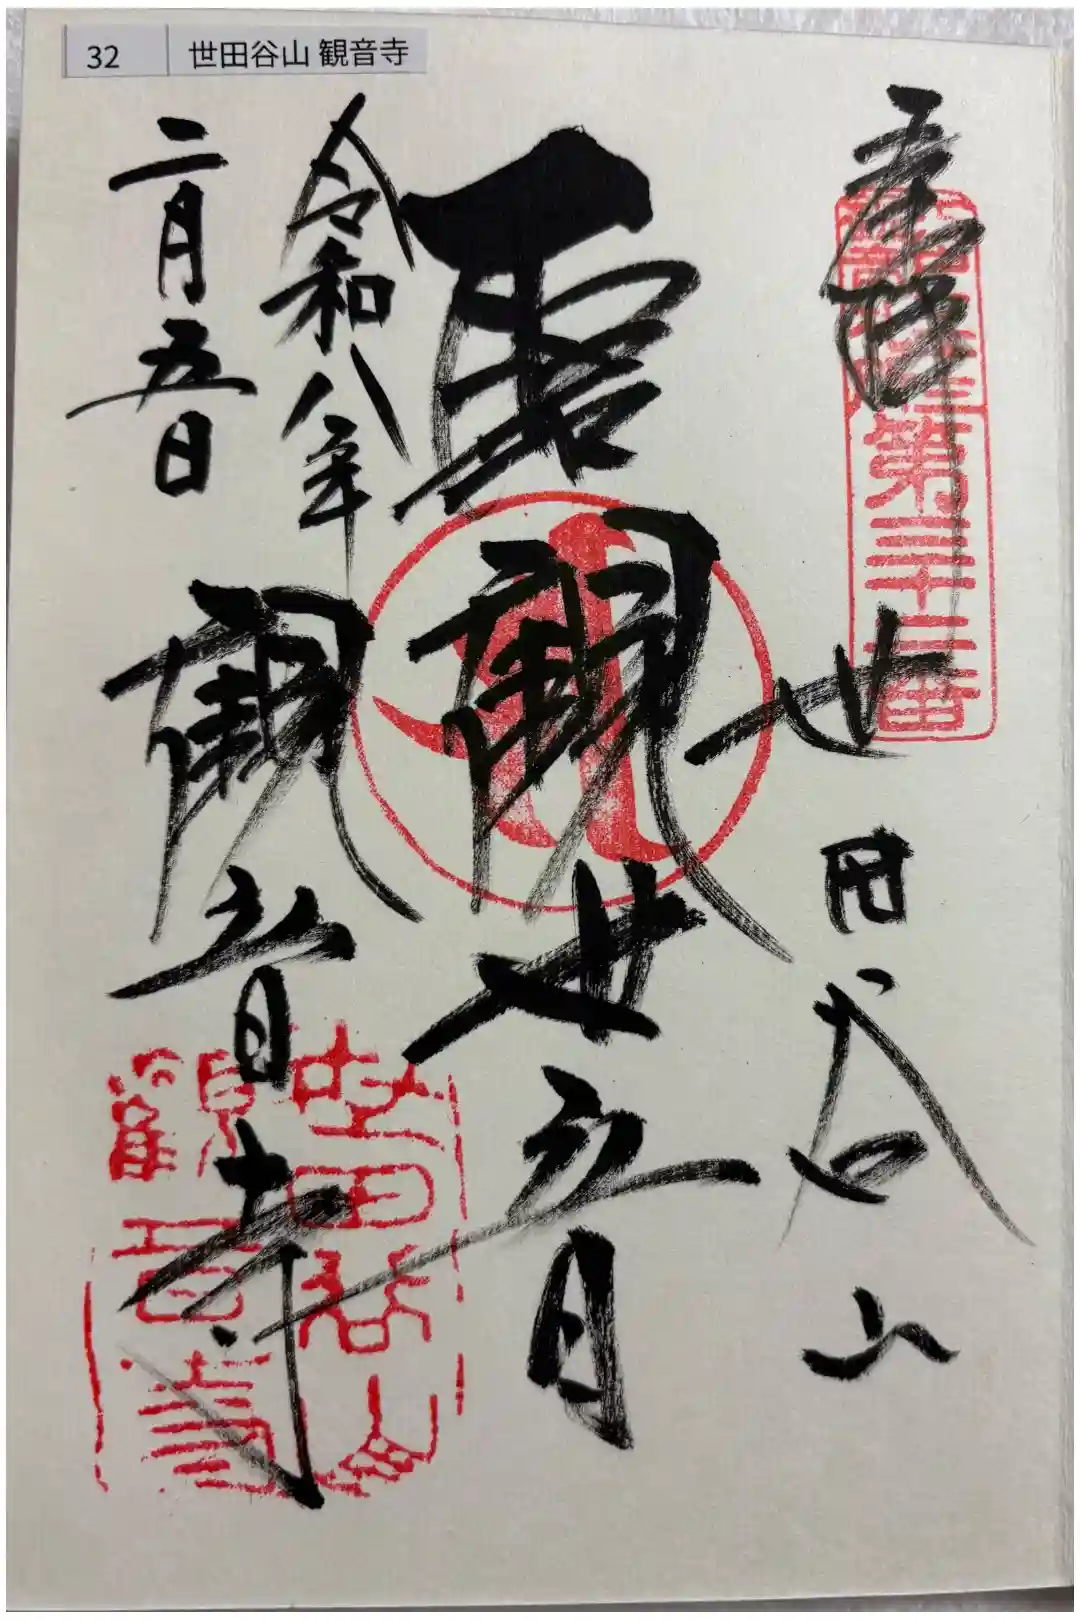 32 世田谷山 観音寺
奉拝
世田谷山
聖観世音
令和八年
二月五日
観音寺
第三十二番
世田谷山
観音寺